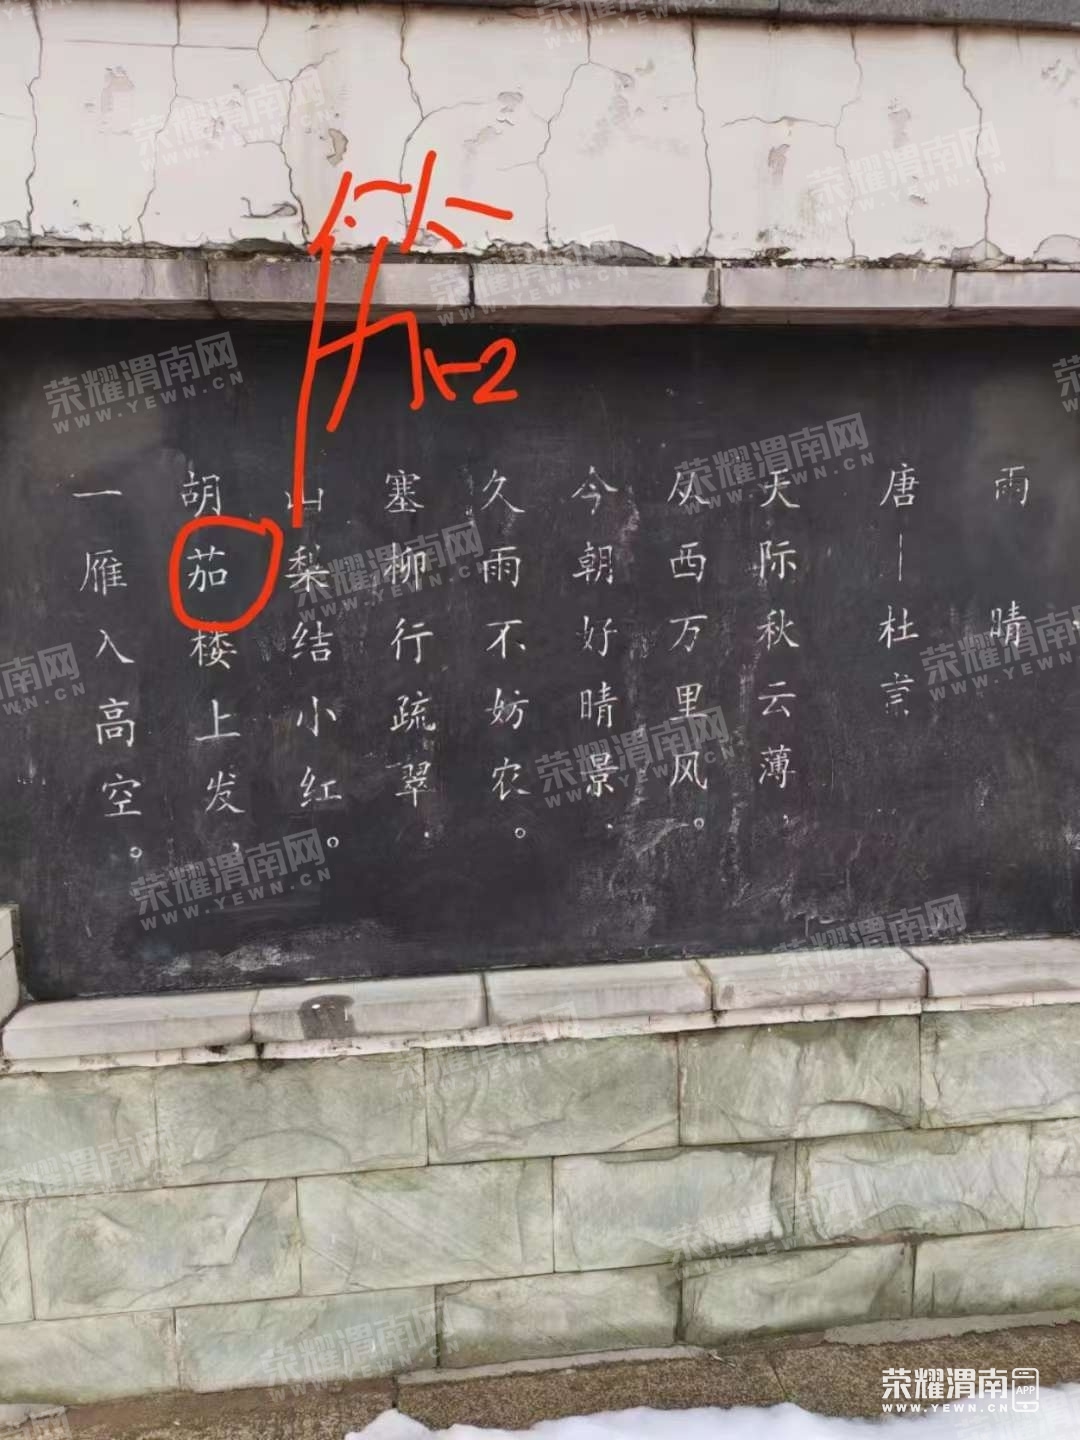 雨晴
唐—杜
天际秋云薄，
从西万里风。
今朝好晴景，
久雨不妨农。
塞柳行疏翠，
山梨结小红。
胡茄楼上发，
一雁入高空。
笳
荣耀渭南网
WWW.YEWN.CN
荣耀渭南 APP
WWW.YEWN.CN